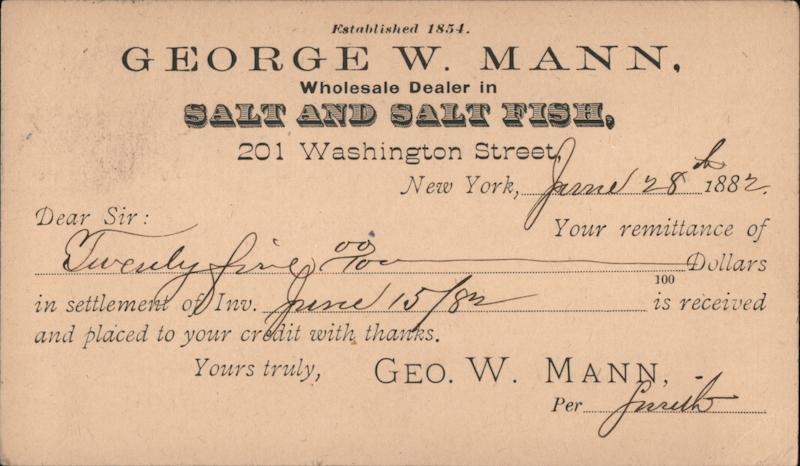 Established 1854.
GEORGE W. MANN,
Wholesale Dealer in
SALT AND SALT FISH,
201 Washington Street,
New York, June 28th 1882.
Dear Sir:
Your remittance of
Twenty five 00/100 Dollars
100
in settlement of Inv. June 15/82 is received
and placed to your credit with thanks.
Yours truly, GEO. W. MANN,
Per